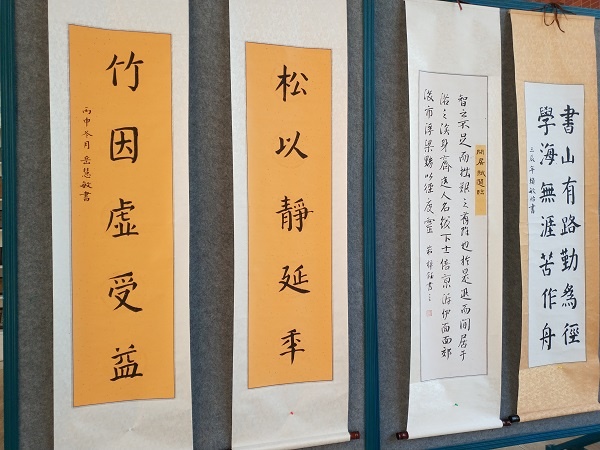 書山有路勤為徑
學海無涯苦作舟
閒居賦選
智之不足而拙艱之有餘也於是退而閒居于
洛之涘身齊逸人名綴下士倍京泝伊面面郊
後市浮梁黝以徑度靈
松以靜延年
竹因虛受益
丙申冬月 岳慧敏書